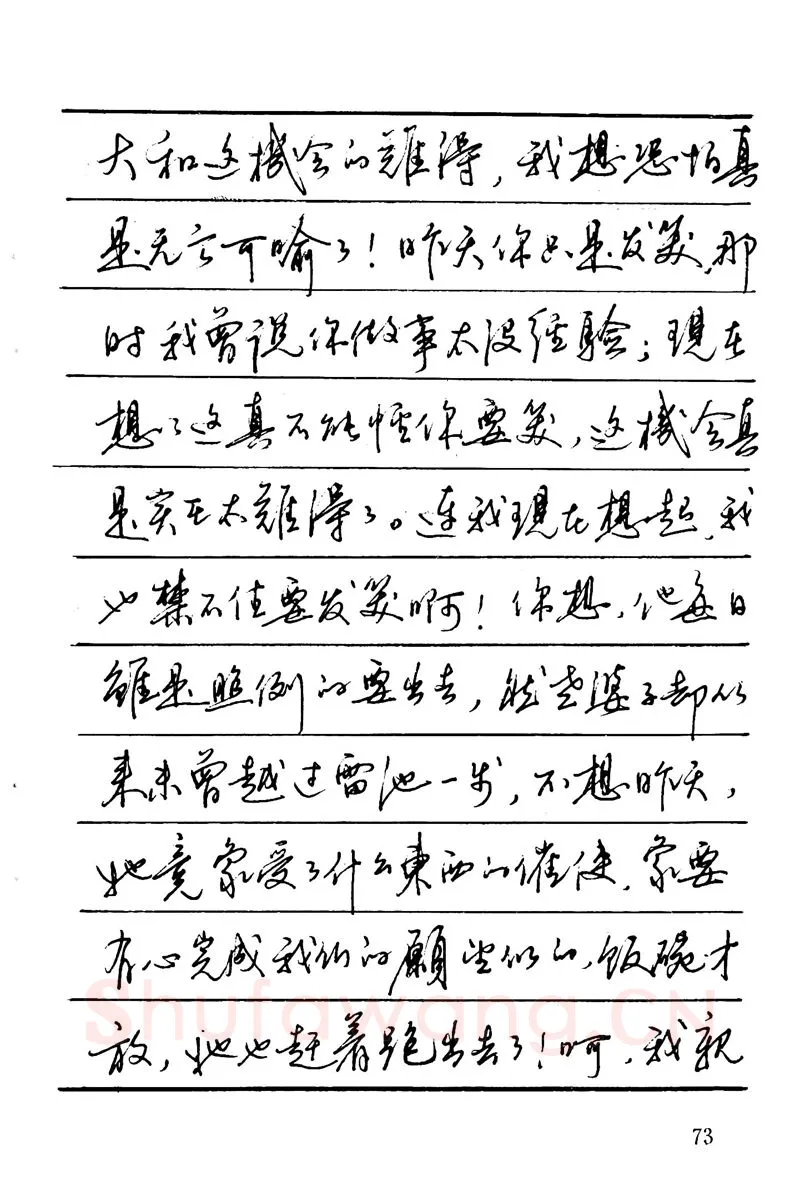 大和这機会的難得，我想恐怕真
是无言可喻了！昨天你只是发笑，那
时我曾说你做事太没经驗；現在
想々这真不能怪你要笑，这機会真
是实在太難得了。连我現在想起，我
也禁不住要发笑啊！你想，他每日
雖是照例的要出去，然老婆子却从
来未曾越过雷池一步，不想昨天，
她竟象受了什么東西的催使，象要
有心完成我们的願望似的，饭碗才
放，她也赶着跑出去了！呵，我親
Shufawang.CN
73